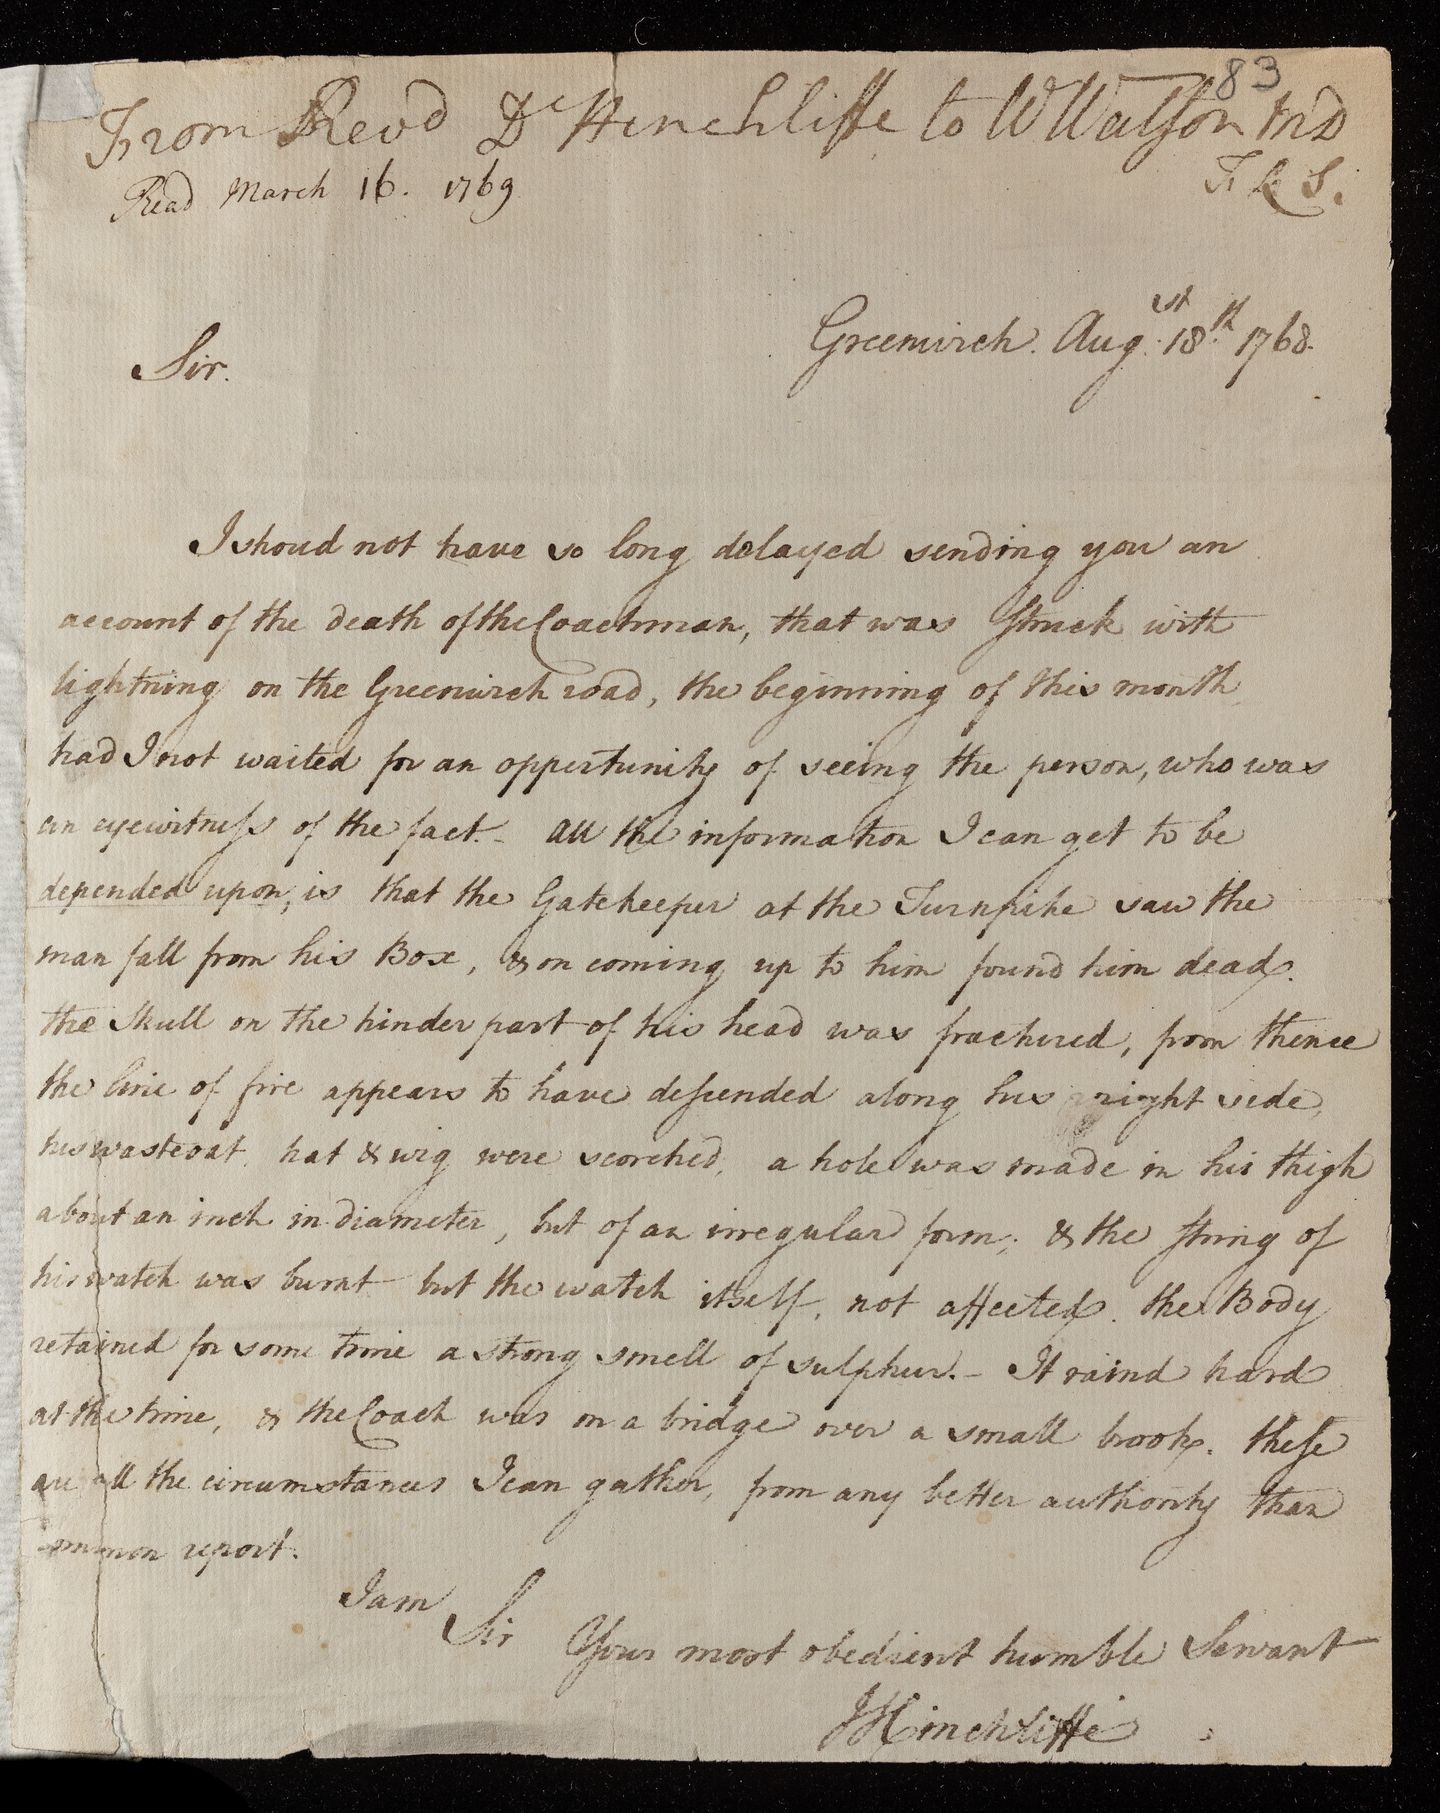 83
From Revd Dr Hinchliffe to W Watson MD
F R S.
Read March 16. 1769
Greenwich. Augst. 18th. 1768.
Sir.
I shoud not have so long delayed sending you an
account of the death of the Coachman, that was struck with
lightning on the Greenwich road, the beginning of this month,
had I not waited for an oppertunity of seeing the person, who was
an eyewitness of the fact. - all the information I can get to be
depended upon, is that the Gatekeeper at the Turnpike saw the
man fall from his Box, & on coming up to him found him dead.
the skull on the hinder part of his head was fractured, from thence
the line of fire appears to have descended along his right side,
his wastcoat, hat & wig were scorched, a hole was made in his thigh
about an inch in diameter, but of an irregular form; & the string of
his watch was burnt but the watch itself, not affected. the Body
retained for some time a strong smell of sulphur. - It raind hard
at the time, & the Coach was on a bridge over a small brook. these
are all the circumstances I can gather, from any better authority than
common report.
I am
Sir
Your most obedient humble Servant
J Hinchliffe